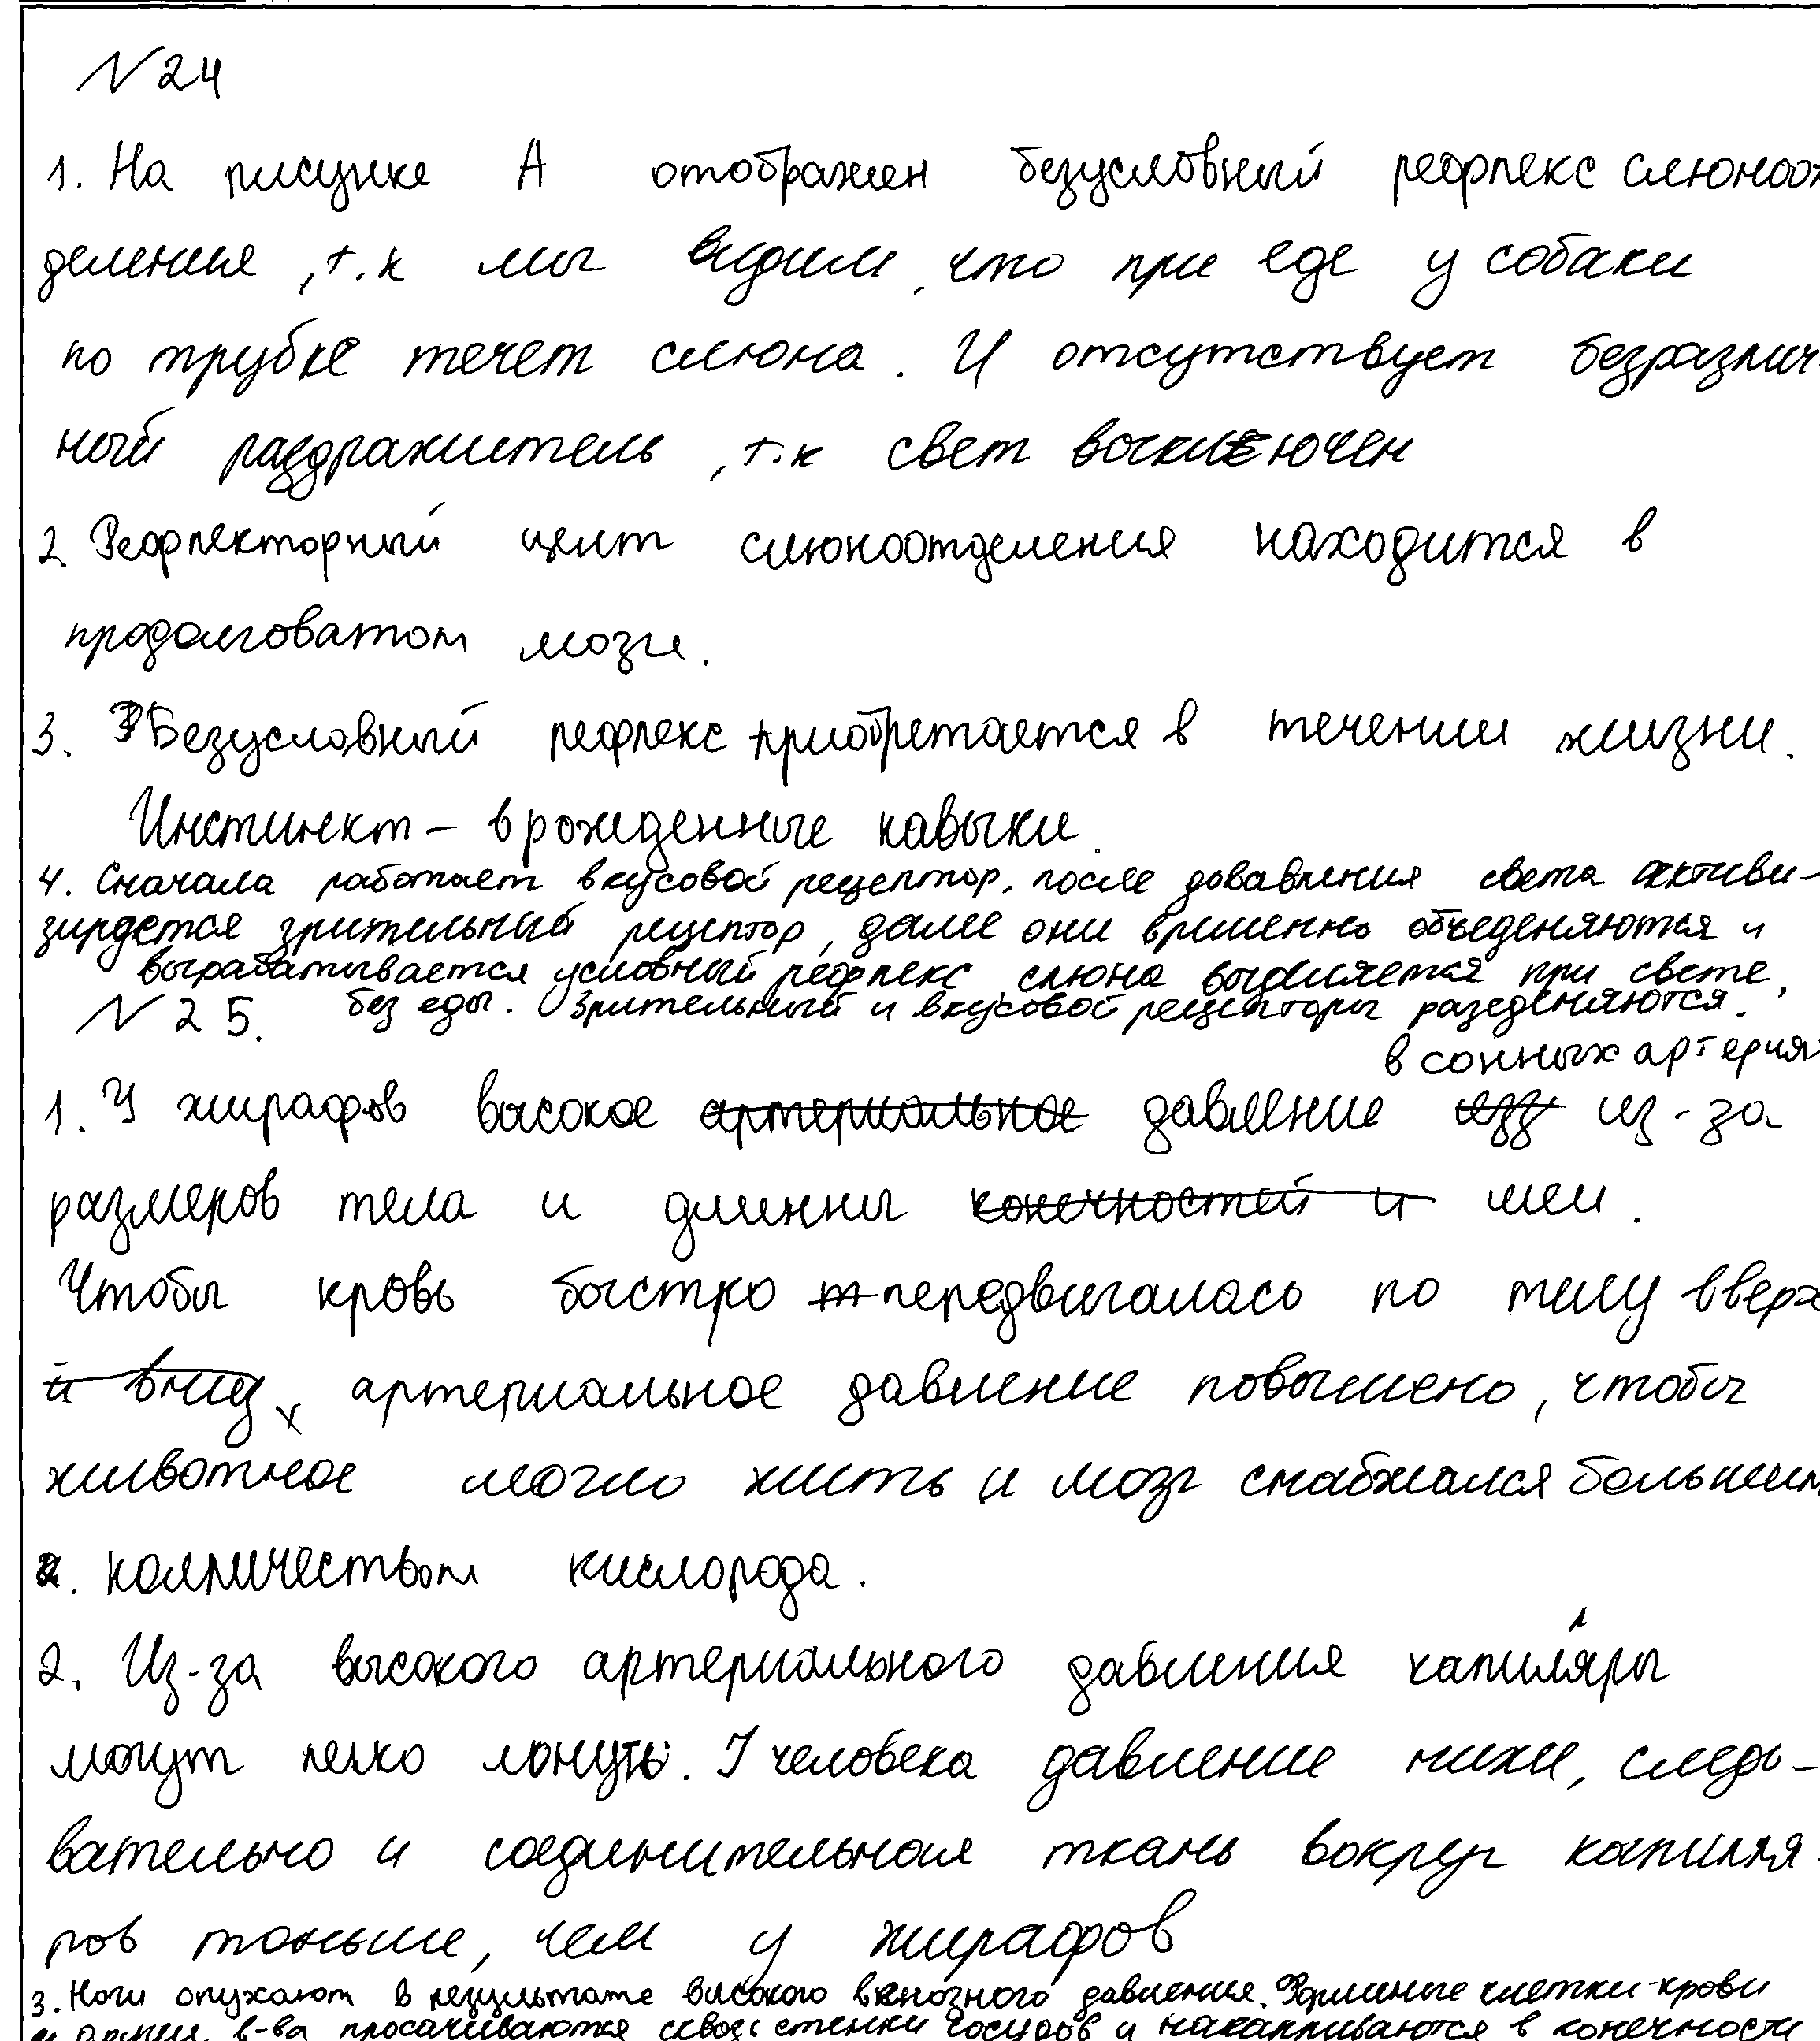 N 24
1. На рисунке А отображен безусловный рефлекс слюноот
деления, т.к мы видим, что при еде у собаки
по трубке течет слюна. И отсутствует безразлич-
ный раздражитель, т.к свет выключен
2 Рефлекторный цент слюноотделения находится в
продолговатом мозге.
3. Безусловный рефлекс приобретается в течении жизни.
Инстинкт – врожденные навыки.
4. Сначала работает вкусовой рецептор, после довавления света активи-
зирдется зрительный рецептор, далее они временно объеденяются и
вырабатывается условный рефлекс слюна выделяется при свете,
без еды. Зрительный и вкусовой рецепторы разеденяются.
N 25.
в сонных артериях
1. У жирафов высокое артериальное давление из-за
размеров тела и длинны конечностей и шеи.
Чтобы кровь быстро передвигалась по телу вверх
и вниз, артериальное давление повышено, чтобы
животное могло жить и мозг снабжался большим
количеством кислорода.
2. Из-за высокого артериального давления капиляры
могут легко лонуть. У человека давление ниже, следо-
вательно и соединительная ткань вокруг капилля-
ров тоньше, чем у жирафов
3. Ноги опухают в результате высокого венозного давления. Форменные клетки крови
и в-ва просачиваются сквозь стенки сосудов и накапливаются в конечности